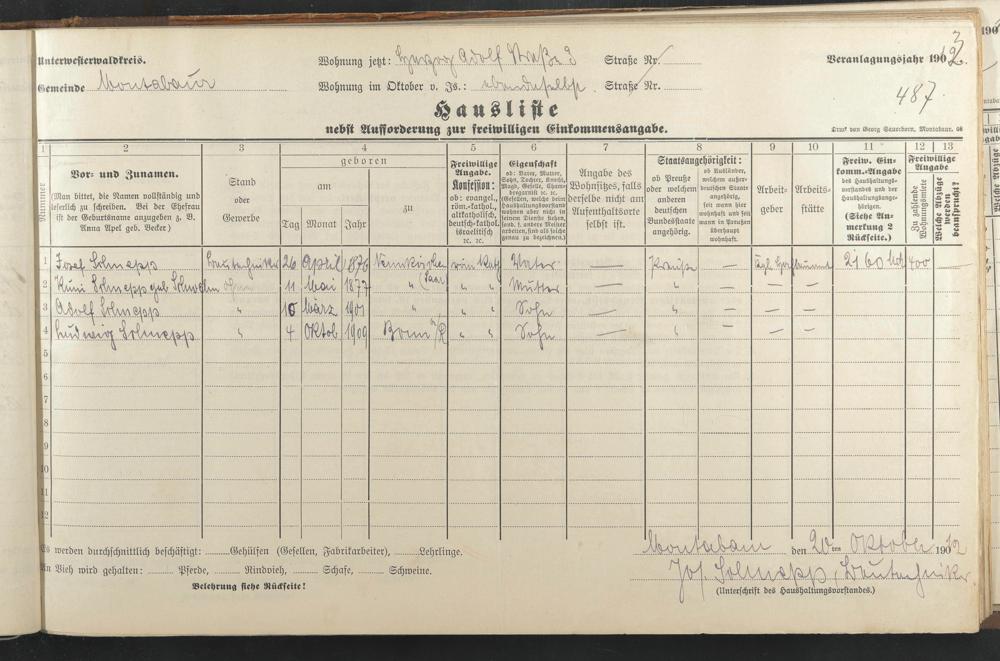 Unterwesterwaldkreis.
Wohnung jetzt: Herzog Adolf Straße 3 Straße Nr.
Veranlagungsjahr 1903.
Gemeinde Montabaur
Wohnung im Oktober v. Js.: ebendaselbst Straße Nr.
487.
Hausliste
nebst Aufforderung zur freiwilligen Einkommensangabe.
Druck von Georg Sauerborn, Montabaur.
1 2 3 4 5 6 7 8 9 10 11 12 13
Nummer
Vor- und Zunamen.
(Man bittet, die Namen vollständig und
leserlich zu schreiben. Bei der Ehefrau
ist der Geburtsname anzugeben z. B.
Anna Apel geb. Becker)
Stand
oder
Gewerbe
geboren
am
Tag Monat Jahr
zu
Freiwillige
Angabe.
Konfession:
ob: evangel.,
röm.-kathol.,
altkatholisch,
deutsch-kathol.
israelitisch,
ec. ec.
Eigenschaft
ob: Vater, Mutter,
Sohn, Tochter, Knecht,
Magd, Geselle,
(Gesellen, welche beim
Haushaltungsvorstand
wohnen, aber nicht in
seinen Diensten stehen,
sind als solche
genau zu bezeichnen.)
Angabe des
Wohnsitzes, falls
derselbe nicht am
Aufenthaltsorte
selbst ist.
Staatsangehörigkeit:
ob Preuße
oder welchem
anderen
deutschen
Bundesstaate
angehörig.
ob Ausländer,
welchem außer-
deutschen Staate
angehörig,
seit wann hier
wohnhaft und seit
wann in Preußen
überhaupt
wohnhaft.
Arbeit-
geber
Arbeits-
stätte
Freiw. Ein-
komm.-Angabe
des Haushaltungs-
vorstandes und der
Haushaltungsange-
hörigen.
(Siehe An-
merkung 2
Rückseite.)
Freiwillige
Angabe
Zu zahlende
Wohnungsmiete
Welche Abzüge
werden
beansprucht?
1 Josef Schnepp Bautechniker 26 April 1876 Neunkirchen röm kath Vater — Preuße — 2160 Mk 400 —
(Saar)
2 geb 11 Mai 1877 " " " Mutter — " — — —
3 Adolf Schnepp " März 1901 " " " Sohn — " — — —
4 Ludwig Schnepp " 4 Oktob 1909 Bonn a/R " " Sohn — " — — —
5
6
7
8
9
10
11
12
Es werden durchschnittlich beschäftigt: Gehülfen (Gesellen, Fabrikarbeiter), Lehrlinge.
Montabaur den 20ten Oktober 1912
An Vieh wird gehalten: Pferde, Rindvieh, Schafe, Schweine.
Jos. Schnepp, Bautechniker
Belehrung siehe Rückseite!
(Unterschrift des Haushaltungsvorstandes.)